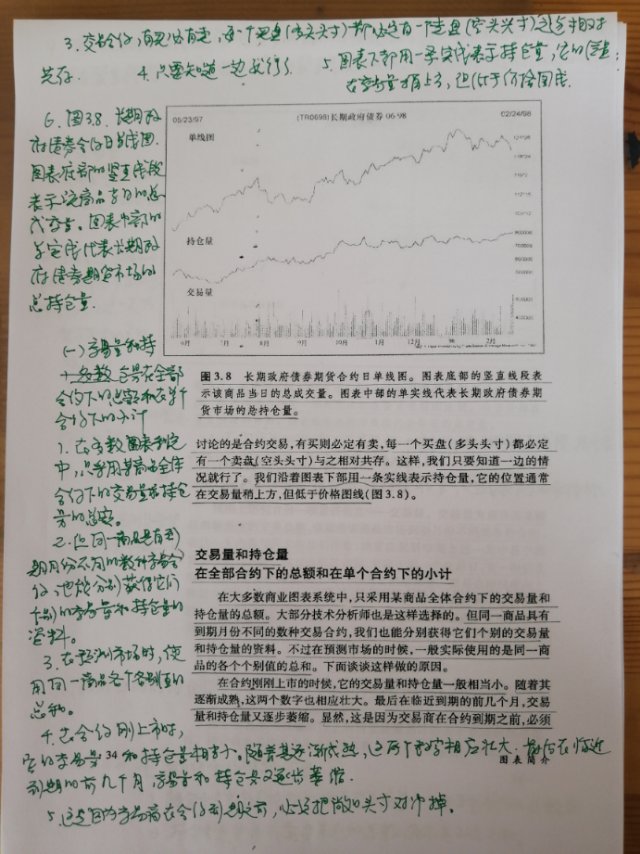 3. 交易合约,有买必有卖,每一个买盘(多头头寸)都必定有一个卖盘(空头头寸)与之相对
共存. 4. 只要知道一边就行了 5. 图表下部用一条实线表示持仓量,它的位置:
在交易量稍上方,但低于价格图线.
6. 图3.8. 长期政
府债券合约日单线图.
图表底部的竖直线段
表示该商品当日的总
成交量。图表中部的
单实线代表长期政
府债券期货市场的
总持仓量.
05/23/97
(TR0698)长期政府债券 06-98
02/24/98
单线图
持仓量
交易量
6月 7月 8月 9月 10月 11月 12月 1月 2月
图 3.8 长期政府债券期货合约日单线图。图表底部的竖直线段表
示该商品当日的总成交量。图表中部的单实线代表长期政府债券期
货市场的总持仓量。
讨论的是合约交易,有买则必定有卖,每一个买盘(多头头寸)都必定
有一个卖盘(空头头寸)与之相对共存。这样,我们只要知道一边的情
况就行了。我们沿着图表下部用一条实线表示持仓量,它的位置通常
在交易量稍上方,但低于价格图线(图 3.8)。
(一) 交易量和持
仓量在全部
合约下的总额和在单个
合约下的小计
1. 在多数图表系统
中,只采用某商品全体
合约下的交易量和持仓
量的总额。
2. 但同一商品具有到
期月份不同的数种交易合
约,也能分别获得它们
个别的交易量和持仓量的
资料.
3. 在预测市场时,使
用同一商品各个个别值的
总和.
4. 在合约刚上市时,
交易量和持仓量
在全部合约下的总额和在单个合约下的小计
在大多数商业图表系统中,只采用某商品全体合约下的交易量和
持仓量的总额。大部分技术分析师也是这样选择的。但同一商品具有
到期月份不同的数种交易合约,我们也能分别获得它们个别的交易量
和持仓量的资料。不过在预测市场的时候,一般实际使用的是同一商
品的各个个别值的总和。下面谈谈这样做的原因。
在合约刚刚上市的时候,它的交易量和持仓量一般相当小。随着其
逐渐成熟,这两个数字也相应壮大。最后在临近到期的前几个月,交易
量和持仓量又逐步萎缩。显然,这是因为交易商在合约到期之前,必须
它的交易量和持仓量相当小. 随着其逐渐成熟,这两个数字相应壮大. 最后在临近
34
图表简介
到期的前几个月 交易量和持仓量又逐步萎缩.
5. 这是因为交易商在合约到期之前,必须把做的头寸对冲掉。